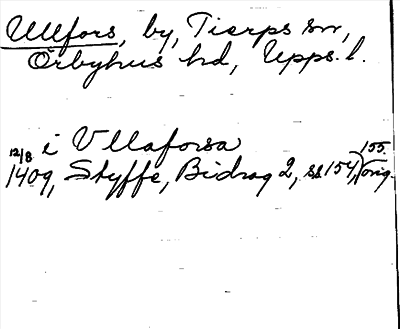 Ullfors, by, Tierps sn,
Örbyhus hd, Upps. l.
i Vllaforsa
12/8 1409, Styffe, Bidrag 2, ss 154, 155 (orig.